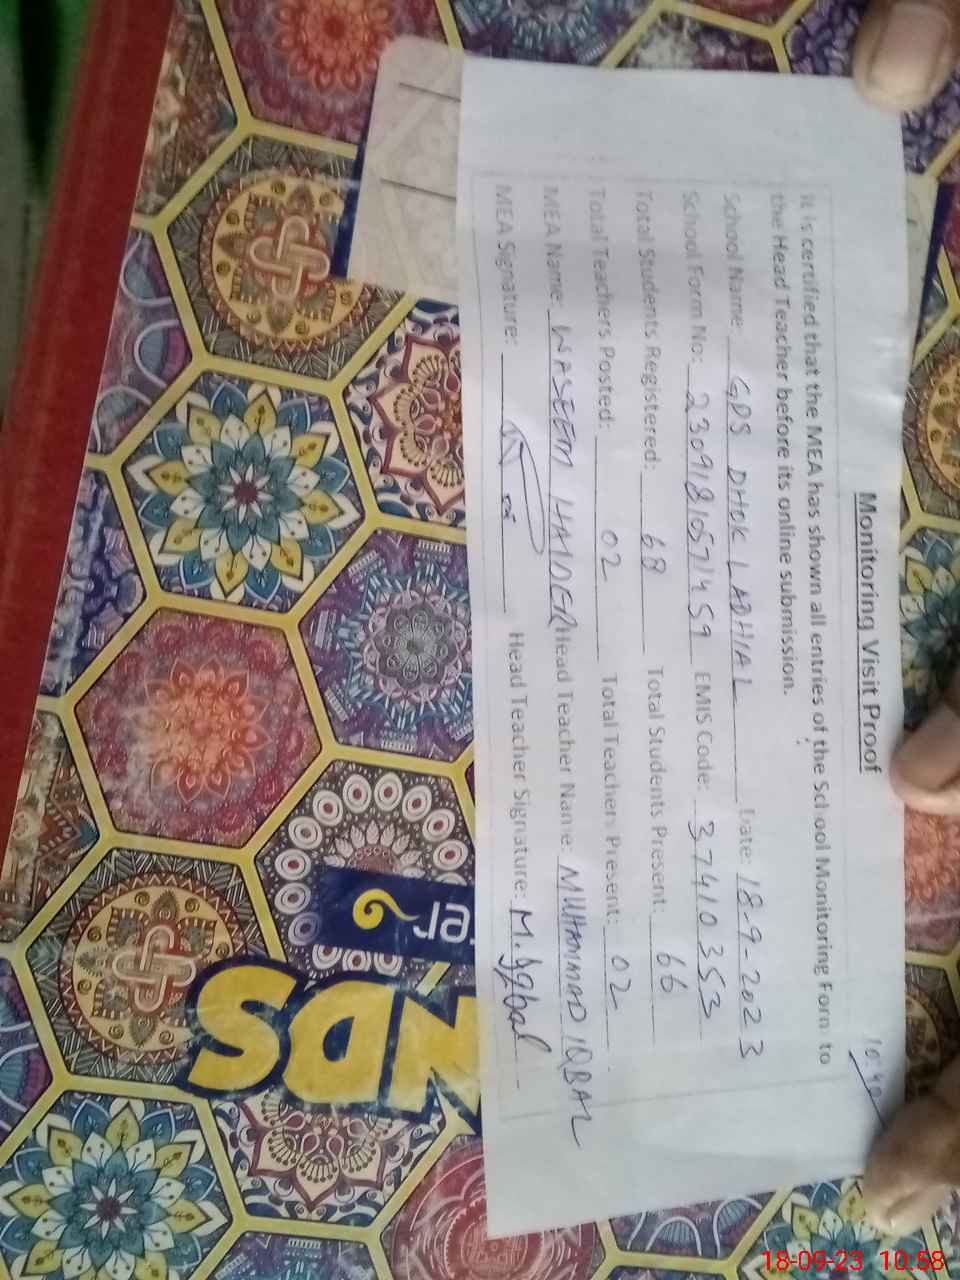 Monitoring Visit Proof
10:40
It is certified that the MEA has shown all entries of the School Monitoring Form to
the Head Teacher before its online submission.
School Name: GPS DHOK LADHIAL Date: 18-9-2023
School Form No: 23091810571459 EMIS Code: 37410353
Total Students Registered: 68 Total Students Present: 66
Total Teachers Posted: 02 Total Teachers Present: 02
MEA Name: WASEEM HAIDER Head Teacher Name: MUHAMMAD IQBAL
MEA Signature: Head Teacher Signature: M. Iqbal
er
NDS
18-09-23 10:58